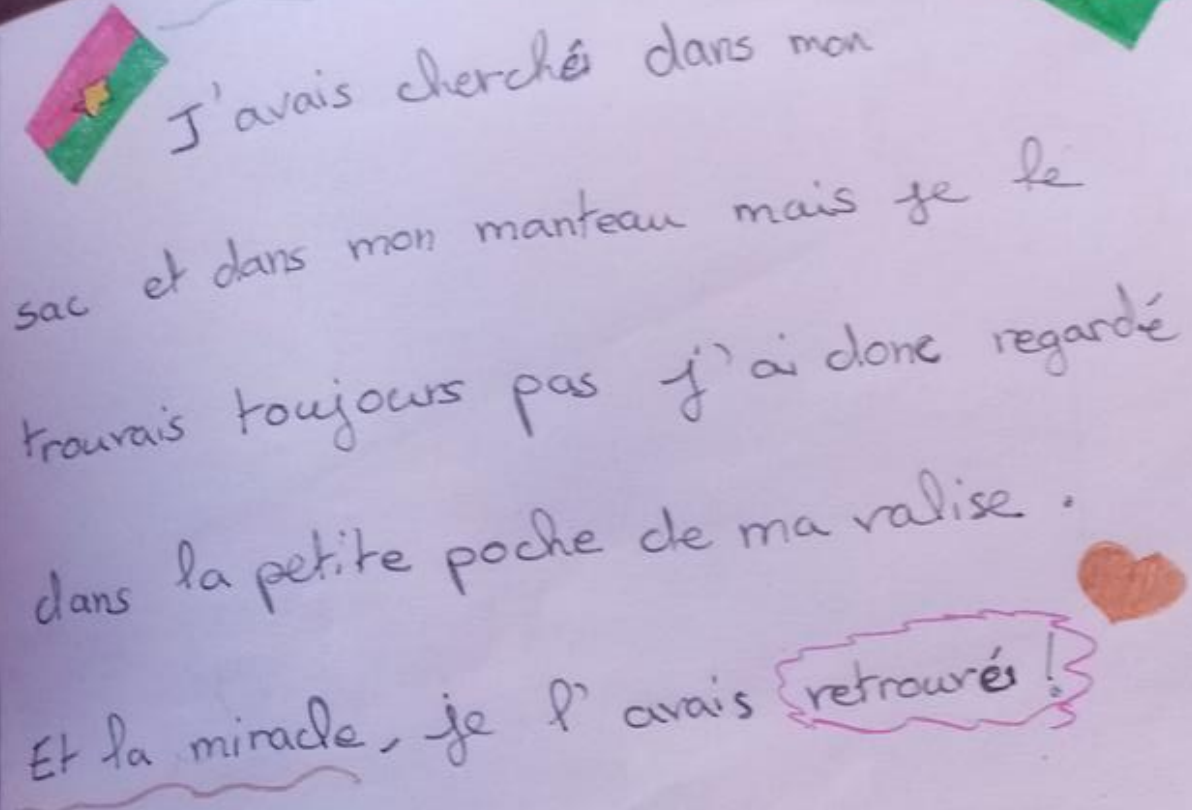 J'avais cherchés dans mon
sac et dans mon manteau mais je le
trouvais toujours pas j'ai donc regardé
dans la petite poche de ma valise.
Et la miracle, je l'avais retrouvés !